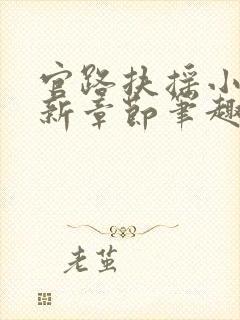 官路扶摇小
新章節筆趣
老茧